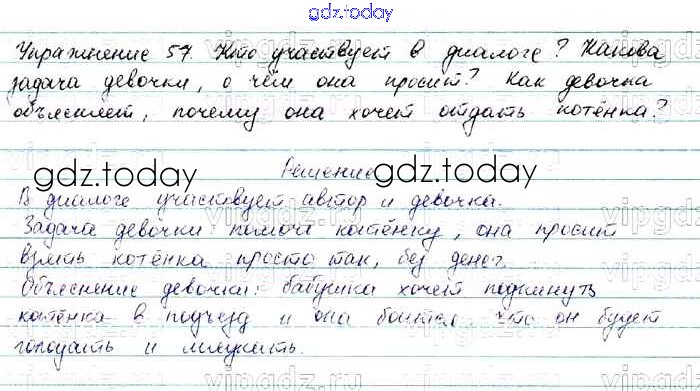 gdz.today
Упражнение 57. Кто участвует в диалоге? Какова
задача девочки, о чём она просит? Как девочка
объясняет, почему она хочет отдать котёнка?
Решение
gdz.today gdz.today
В диалоге участвует автор и девочка.
Задача девочки помочь котёнку, она просит
взять котёнка просто так, без денег.
Объяснение девочки: бабушка хочет подкинуть
котёнка в подъезд и она боится что он будет
голодать и мяукать.
vipgdz.ru